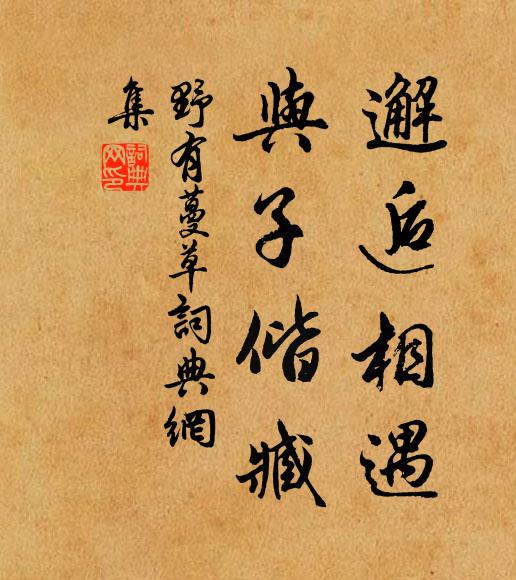 邂逅相遇
與子偕臧
野有蔓草詞典網
集
詞典網印